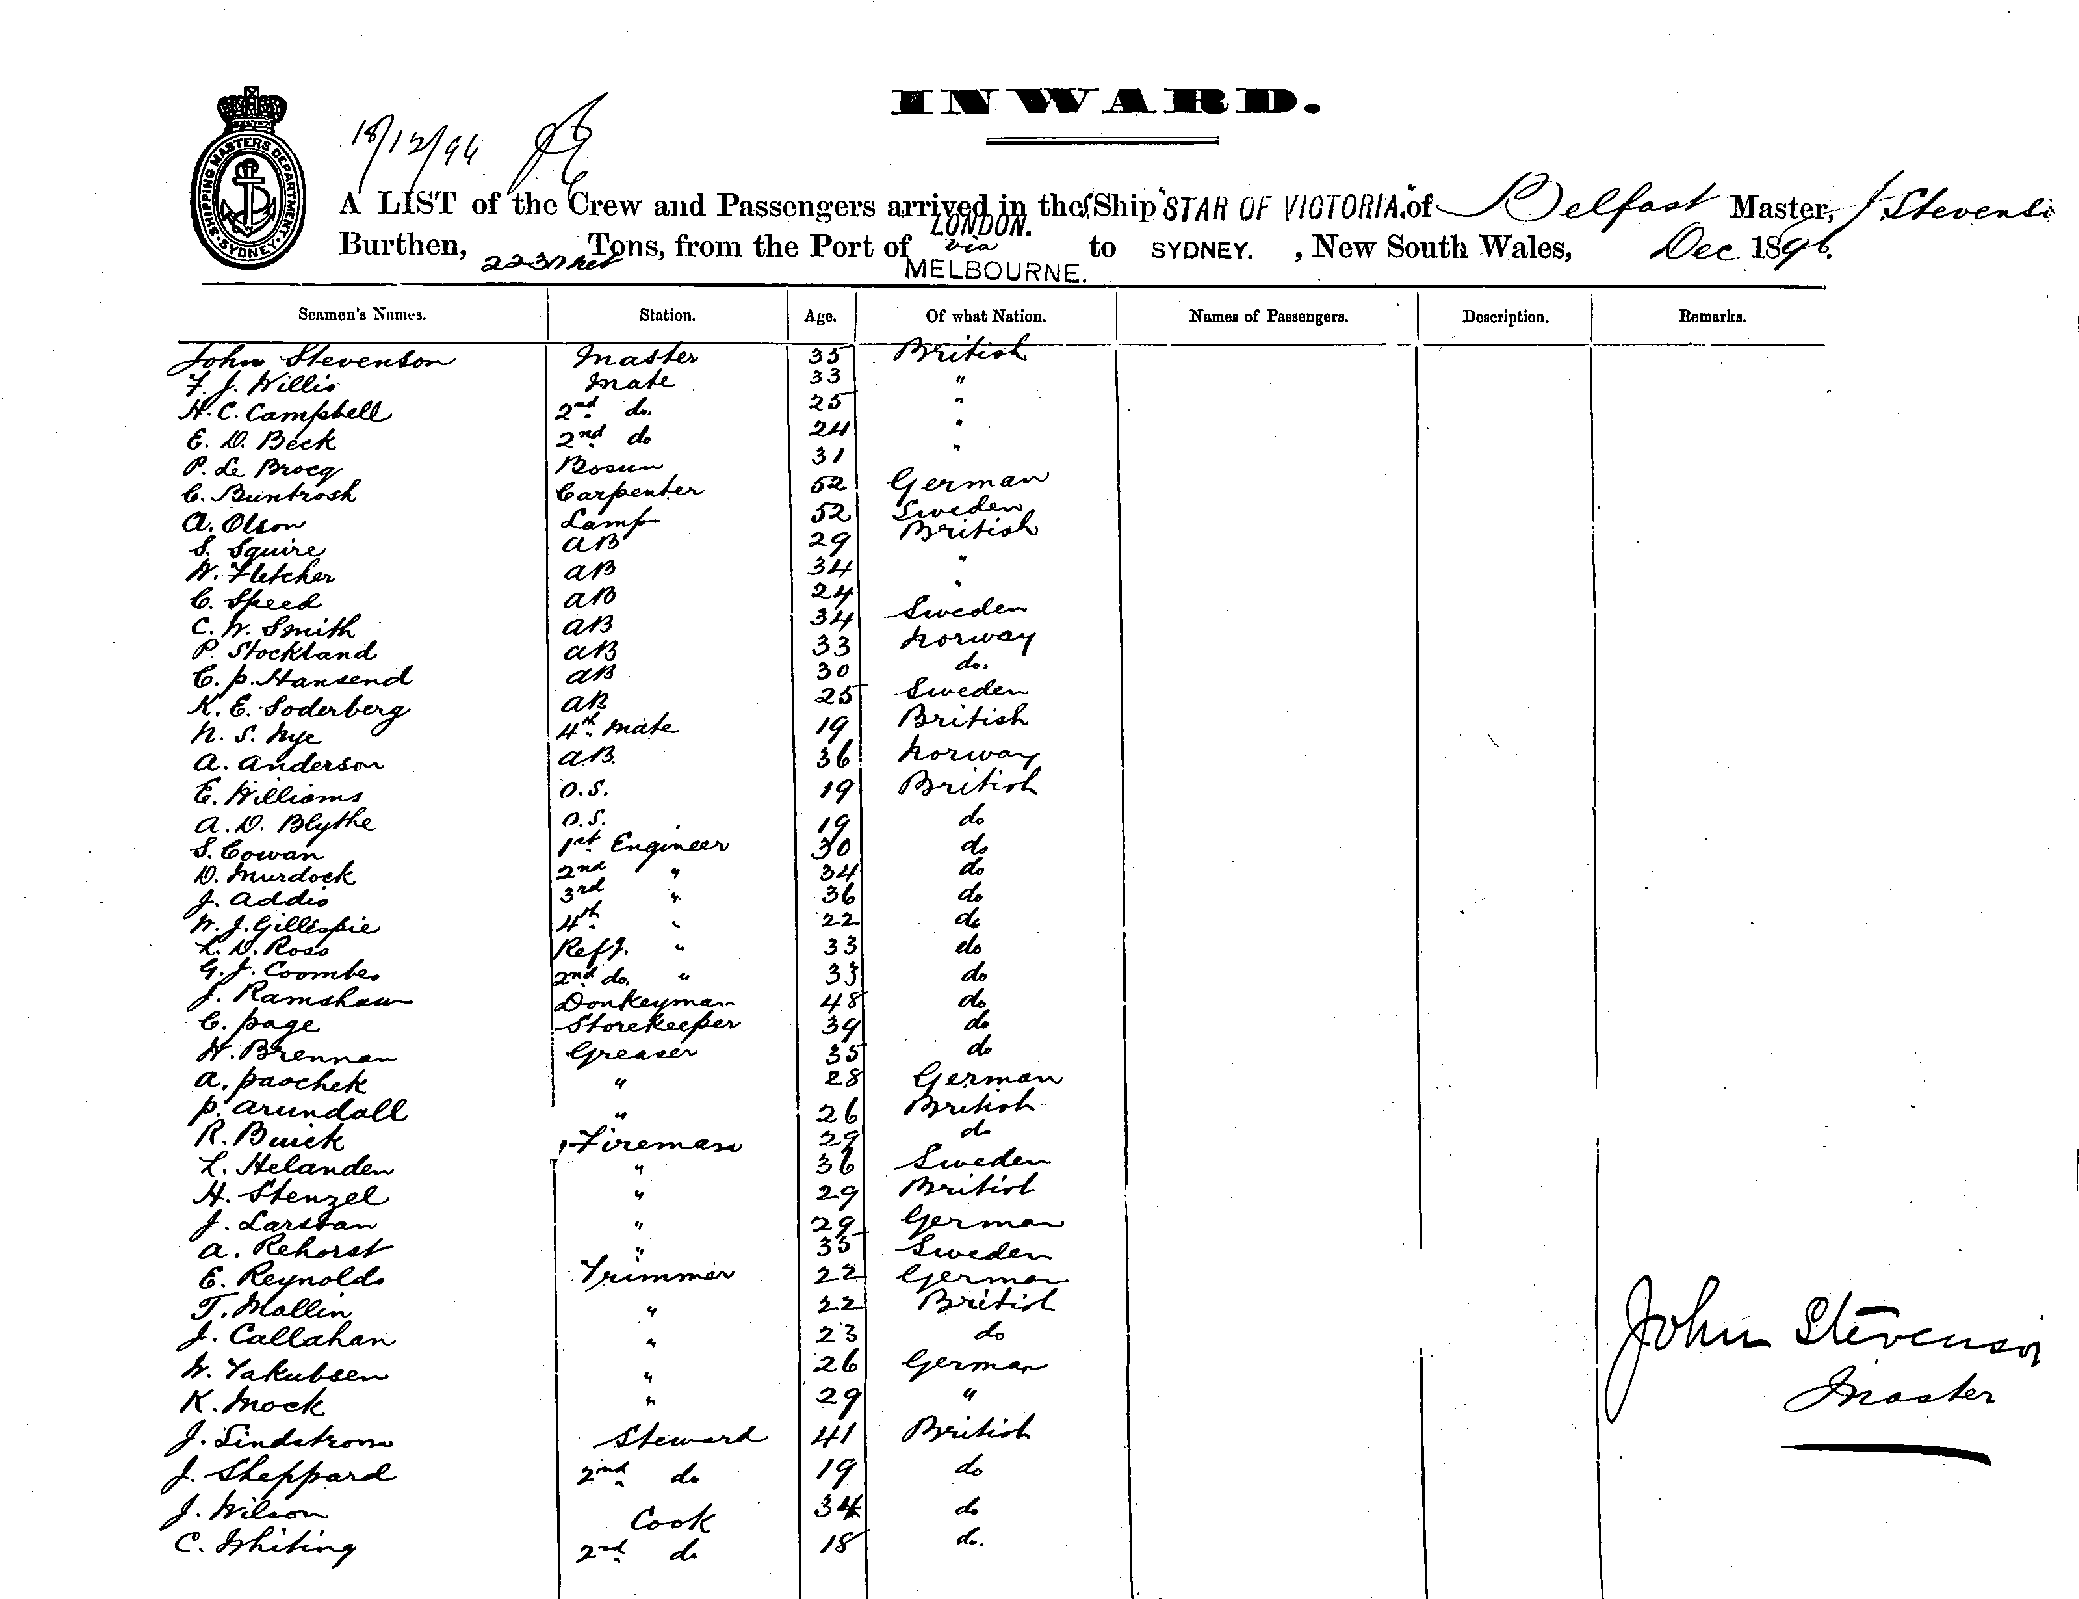 INWARD.
18/12/96
SHIPPING MASTERS DEPARTMENT. SYDNEY
A LIST of the Crew and Passengers arrived in the S. Ship "STAR OF VICTORIA" of Belfast Master, J Stevenson
LONDON.
Burthen, 2237 net Tons, from the Port of via to SYDNEY. , New South Wales, Dec 1896.
MELBOURNE.
Seamen's Names. Station. Age. Of what Nation. Names of Passengers. Description. Remarks.
John Stevenson Master 35 British
F. J. Willis Mate 33 "
H. C. Campbell 2nd do. 25 "
E. D. Beck 2nd do 24 "
P. Le Brocq Bosun 31 "
C. Buntrosh Carpenter 52 German
A. Olson Lamp 52 Sweden
S. Squire AB 29 British
W. Fletcher AB 34 "
C. Speed AB 24 "
C. W. Smith AB 34 Sweden
P. Stockland AB 33 Norway
C. P. Hansend AB 30 do.
K. E. Soderberg AB 25 Sweden
N. S. Nye 4th Mate 19 British
A. Anderson AB. 36 Norway
E. Williams O.S. 19 British
A. D. Blythe O.S. 19 do
S. Cowan 1st Engineer 30 do
D. Murdock 2nd " 34 do
J. Addis 3rd " 36 do
W. J. Gillespie 4th " 22 do
L. D. Ross Refj. " 33 do
G. J. Coombes 2nd do. " 33 do
J. Ramshaw Donkeyman 48 do
C. Page Storekeeper 39 do
H. Brennan Greaser 35 do
A. Paschek " 28 German
P. Arundall " 26 British
R. Buick Fireman 29 do
L. Helanden " 36 Sweden
H. Stenzel " 29 British
J. Larsson " 29 German
A. Rehorst " 35 Sweden
E. Reynolds Trimmer 22 German
T. Mallin " 22 British
J. Callahan " 23 do
W. Yakubsen " 26 German
K. Mock " 29 "
J. Lindstrom Steward 41 British
J. Sheppard 2nd do 19 do
J. Wilson Cook 34 do
C. Whiting 2nd do 18 do.
John Stevenson
Master